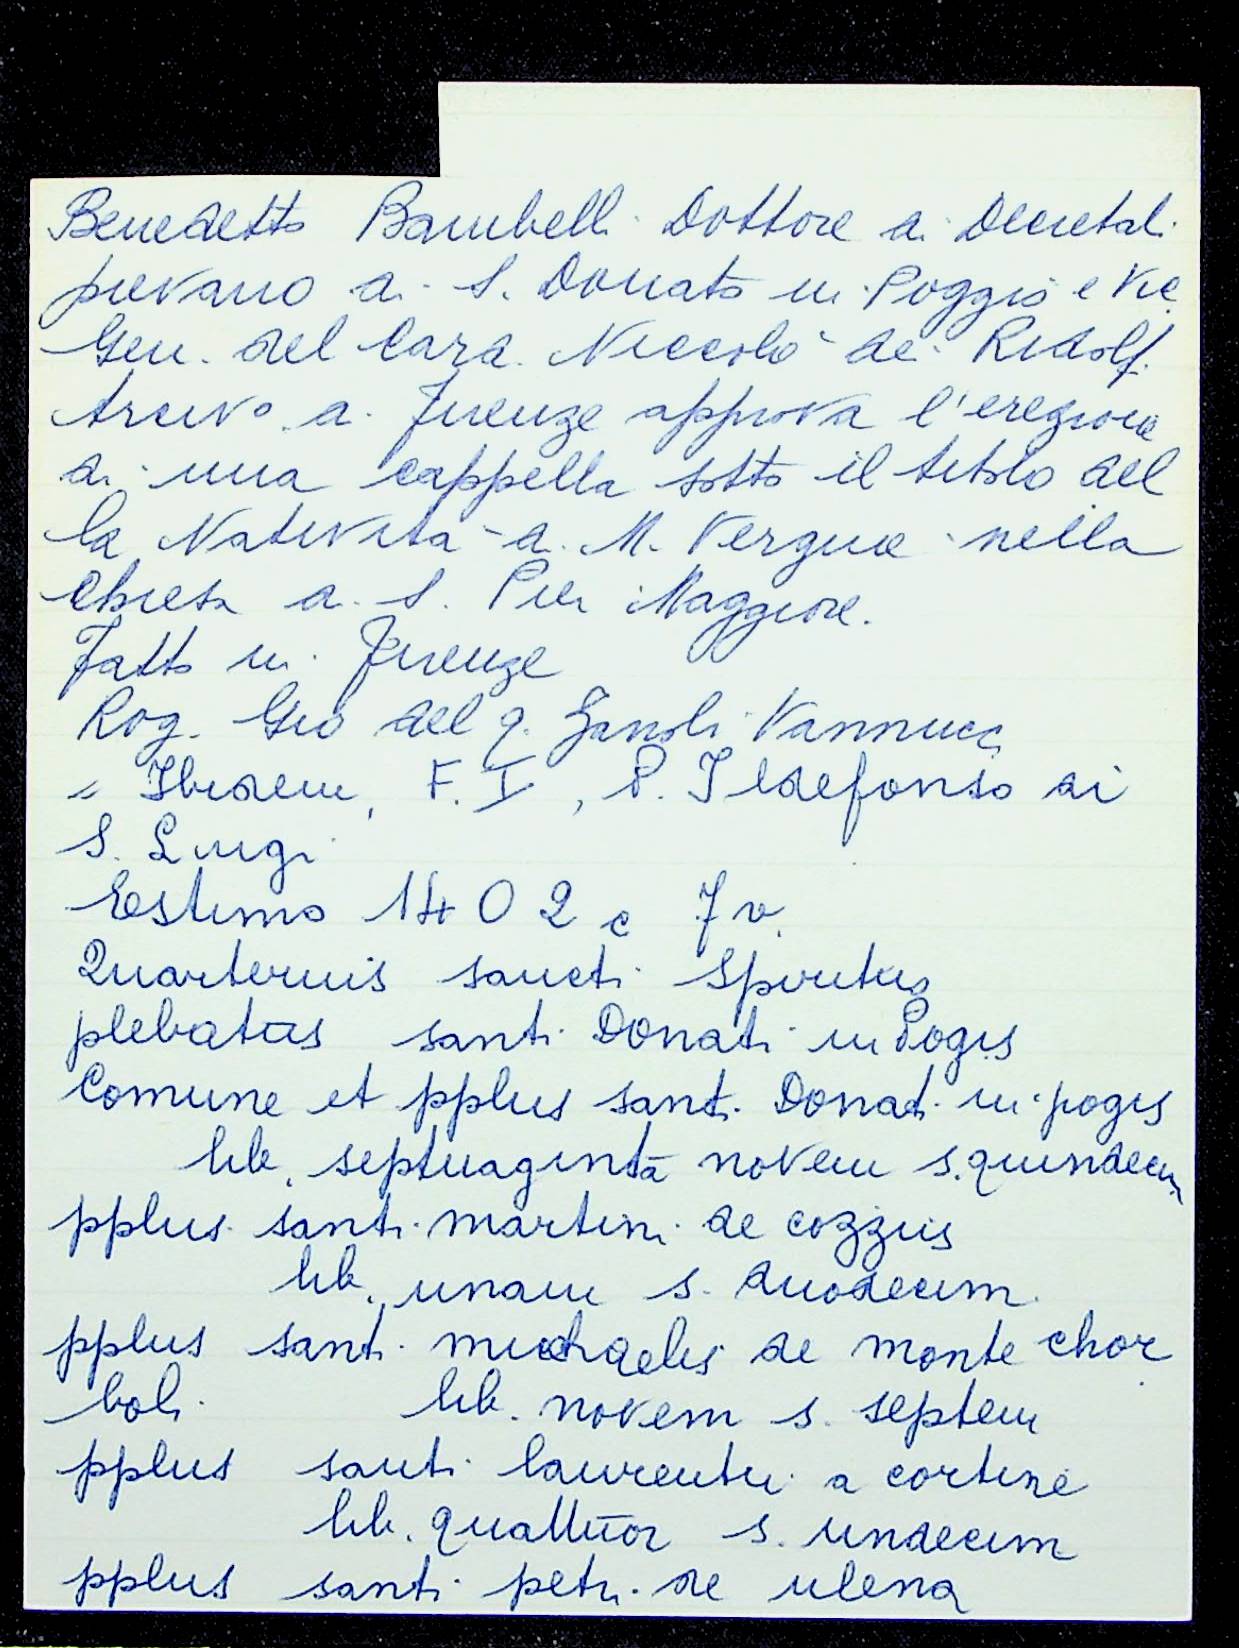 Benedetto Bambelli Dottore di Decretali
pievano di S. Donato in Poggio e Vic.
Gen. del Card. Niccolò dei Ridolfi
Arciv° di Firenze approva l'erezione
di una cappella sotto il titolo del
la Natività di M. Vergine nella
chiesa di S. Pier Maggiore.
Fatto in Firenze
Rog. Gio del q. Zanobi Vannucci
" Ibidem, F. I, P. Ildefonso di
S. Luigi
Estimo 1402 c 7v.
Quarternis sancti Spiritus
plebatus santi Donati in Pogis
Comune et pplus santi Donati in pogis
lib. septuaginta novem s. quindecim
pplus santi martini de cozzis
lib. unam s. duodecim
pplus santi michaelis de monte chor
boli lib. novem s. septem
pplus santi laurentii a cortine
lib. quattuor s. undecim
pplus santi petri de ulena